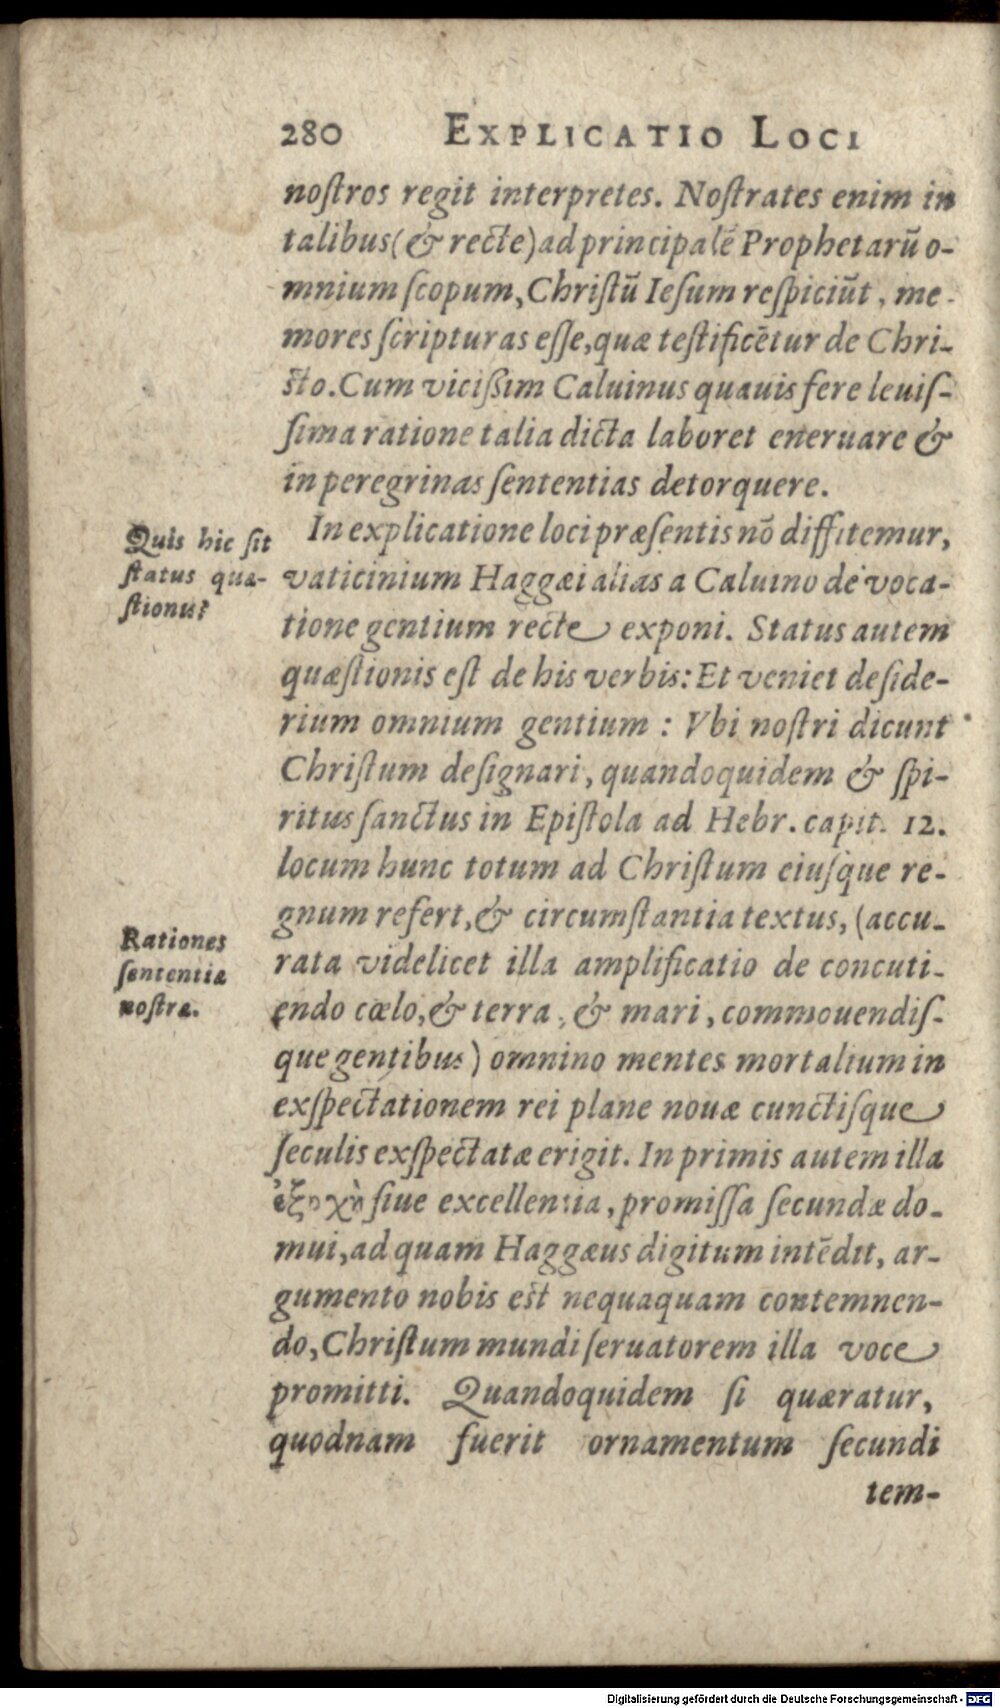 280 EXPLICATIO LOCI
noſtros regit interpretes. Noſtrates enim in
talibus (& recte) ad principalē Prophetarū o-
mnium ſcopum, Chriſtū Ieſum reſpiciūt, me-
mores ſcripturas eſſe, quæ teſtificētur de Chri-
ſto. Cum vicißim Caluinus quauis fere leuiſ-
ſima ratione talia dicta laboret eneruare &
in peregrinas ſententias detorquere.
Quis hic ſit
ſtatus quæ-
ſtionis?
In explicatione loci præſentis nō diffitemur,
vaticinium Haggæi alias a Caluino de voca-
tione gentium recte exponi. Status autem
quæſtionis eſt de his verbis: Et veniet deſide-
rium omnium gentium: Vbi noſtri dicunt
Chriſtum deſignari, quandoquidem & ſpi-
ritus ſanctus in Epiſtola ad Hebr. capit. 12.
locum hunc totum ad Chriſtum eiuſque re-
gnum refert, & circumſtantia textus, (accu-
Rationes
ſententiæ
noſtræ.
rata videlicet illa amplificatio de concuti-
endo cœlo, & terra, & mari, commouendiſ-
que gentibus) omnino mentes mortalium in
exſpectationem rei plane nouæ cunctiſque
ſeculis exſpectatæ erigit. In primis autem illa
ἐξοχὴ ſiue excellentia, promiſſa ſecundæ do-
mui, ad quam Haggæus digitum intēdit, ar-
gumento nobis eſt nequaquam contemnen-
do, Chriſtum mundi ſeruatorem illa voce
promitti. Quandoquidem ſi quæratur,
quodnam fuerit ornamentum ſecundi
tem-
Digitalisierung gefördert durch die Deutsche Forschungsgemeinschaft - DFG